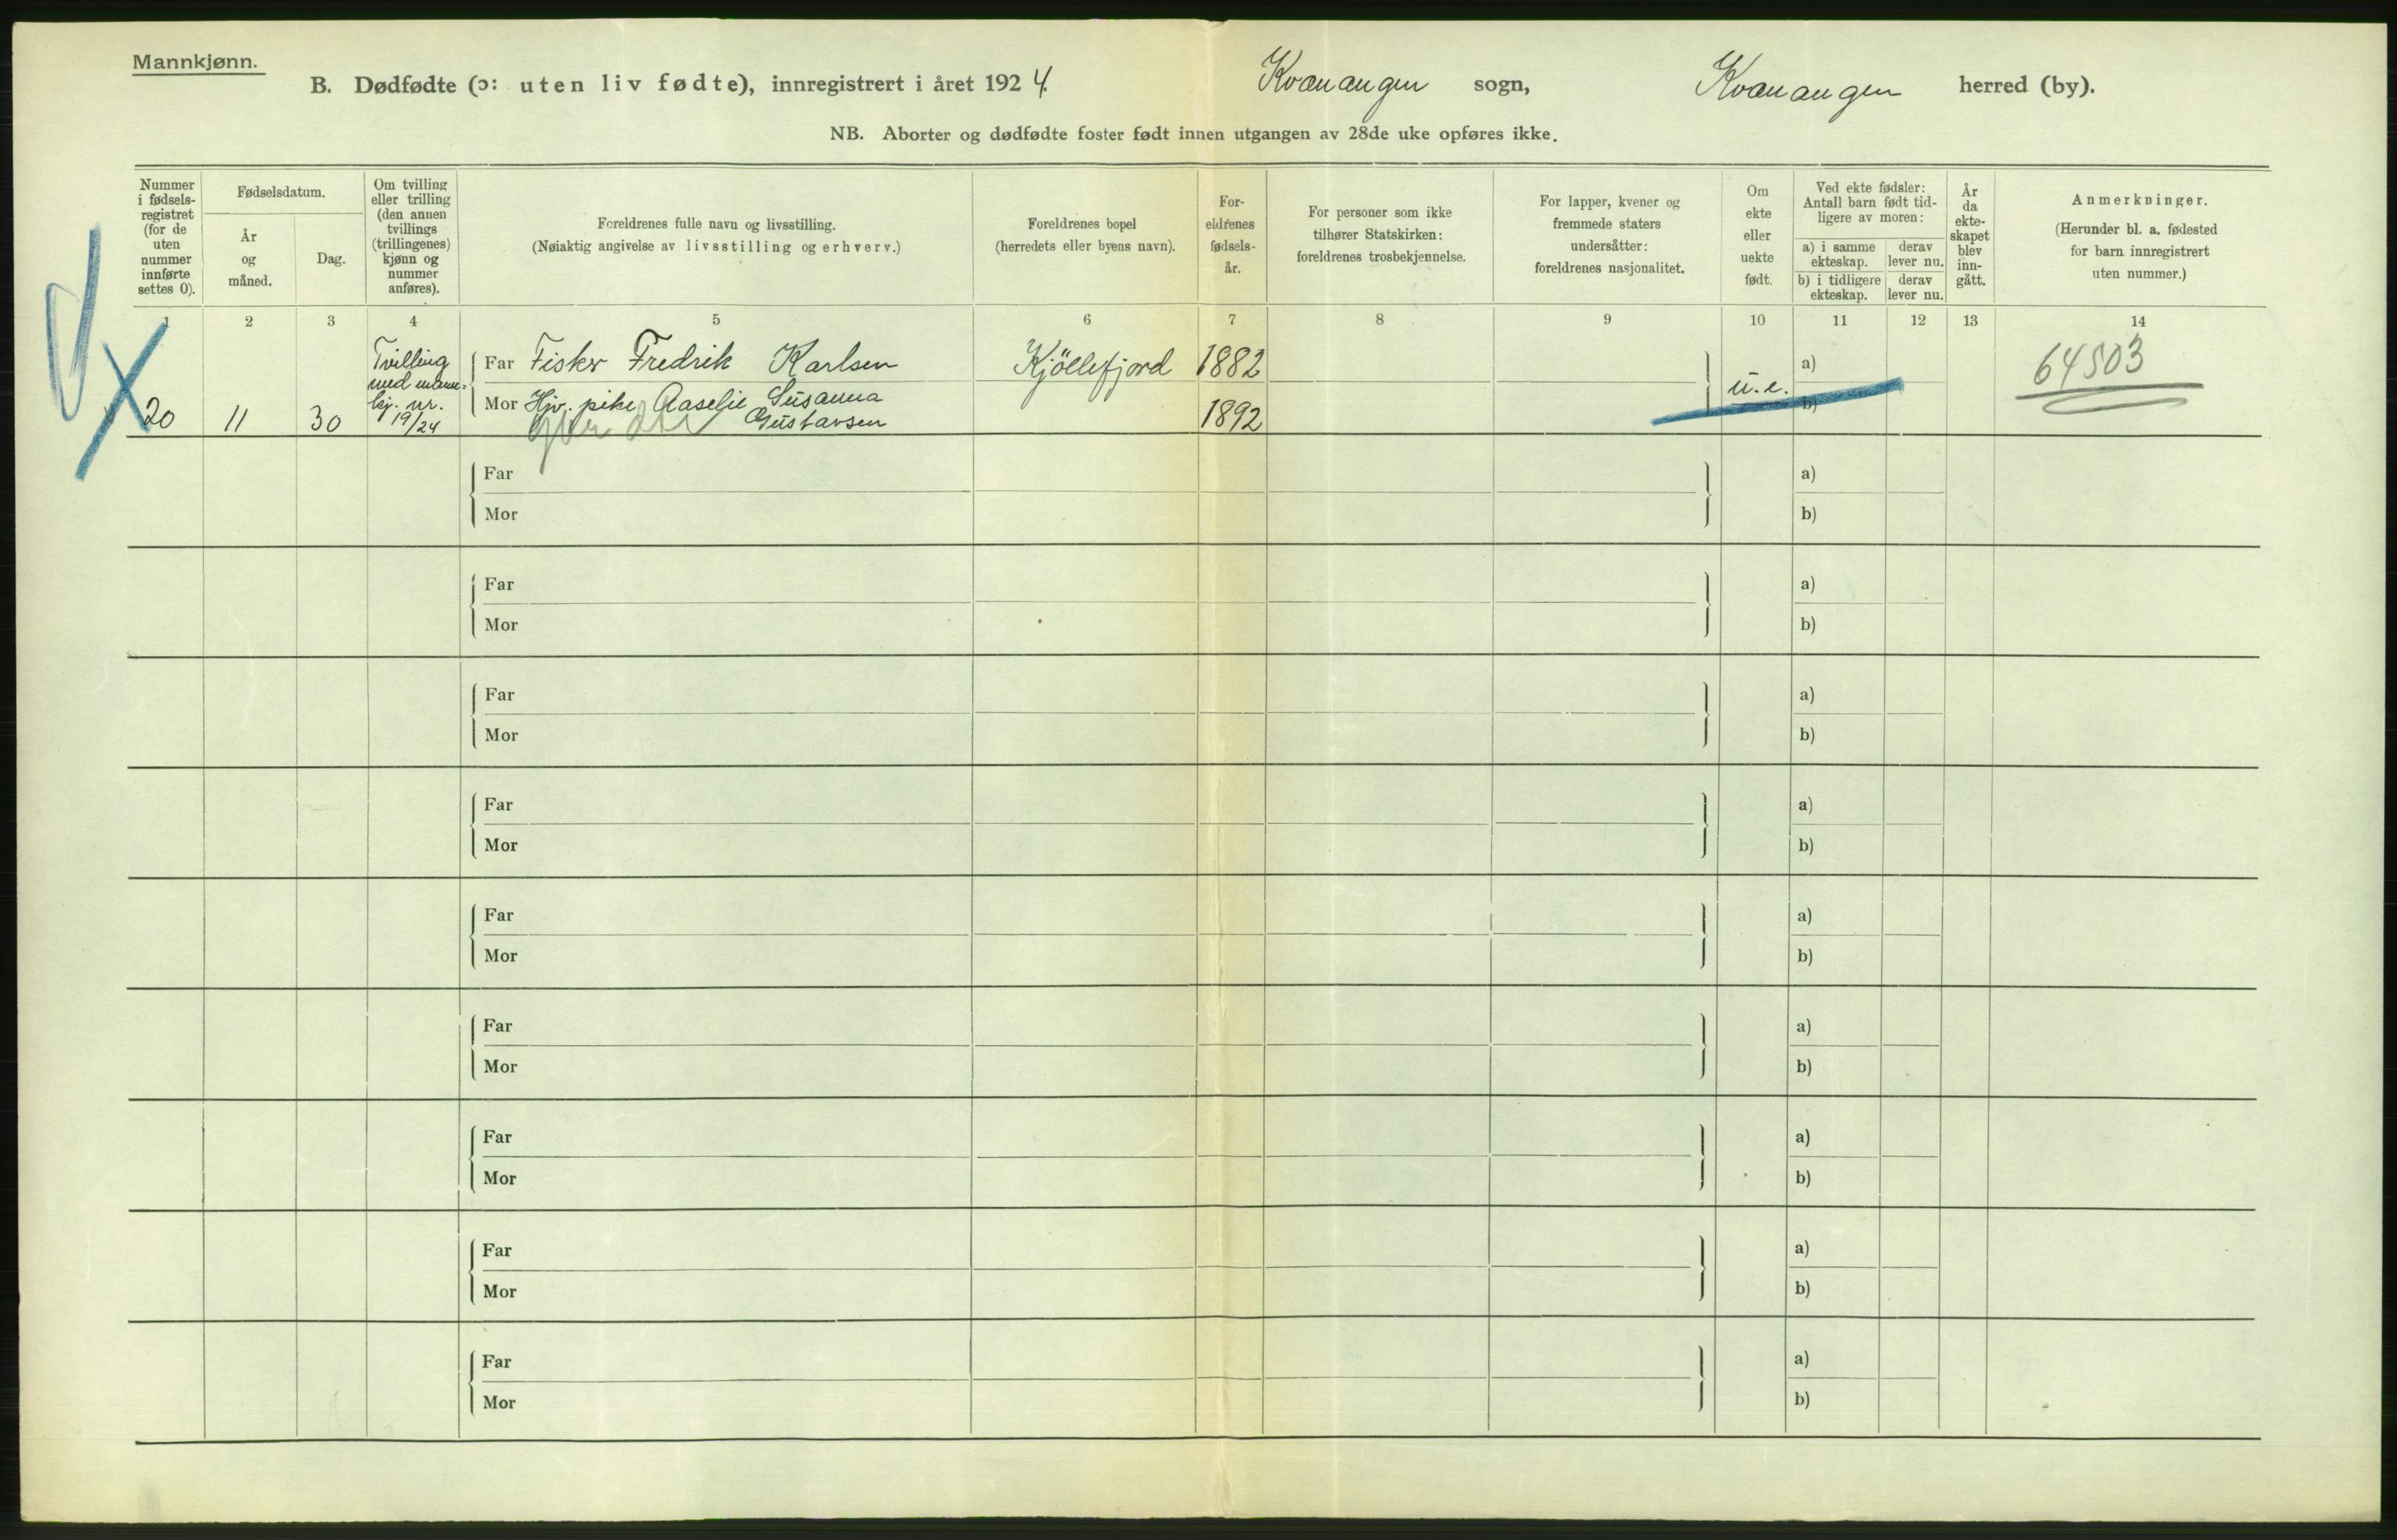 Mannkjønn.
B. Dødfødte (ɔ: uten liv fødte), innregistrert i året 1924. Kvænangen sogn, Kvænangen herred (by).
NB. Aborter og dødfødte foster født innen utgangen av 28de uke opføres ikke.
Nummer i fødsels-registret (for de uten nummer innførte settes 0).
Fødselsdatum.
År og måned.
Dag.
Om tvilling eller trilling (den annen tvillings (trillingenes) kjønn og nummer anføres).
Foreldrenes fulle navn og livsstilling.
(Nøiaktig angivelse av livsstilling og erhverv.)
Foreldrenes bopel
(herredets eller byens navn).
For-eldrenes fødsels-år.
For personer som ikke tilhører Statskirken: foreldrenes trosbekjennelse.
For lapper, kvener og fremmede staters undersåtter: foreldrenes nasjonalitet.
Om ekte eller uekte født.
Ved ekte fødsler: Antall barn født tid-ligere av moren:
a) i samme ekteskap.
derav lever nu.
b) i tidligere ekteskap.
derav lever nu.
År da ekte-skapet blev inn-gått.
Anmerkninger.
(Herunder bl. a. fødested for barn innregistrert uten nummer.)
1 2 3 4 5 6 7 8 9 10 11 12 13 14
20 11 30
Tvilling
med mann-
kj. nr.
19/24
Far Fisker Fredrik Karlsen Kjöllefjord 1882
Mor Hjv. pike Aaselie Susanna
Gustavsen 1892
u.e.
a)
b)
64503
Far a)
Mor b)
Far a)
Mor b)
Far a)
Mor b)
Far a)
Mor b)
Far a)
Mor b)
Far a)
Mor b)
Far a)
Mor b)
Far a)
Mor b)
Far a)
Mor b)